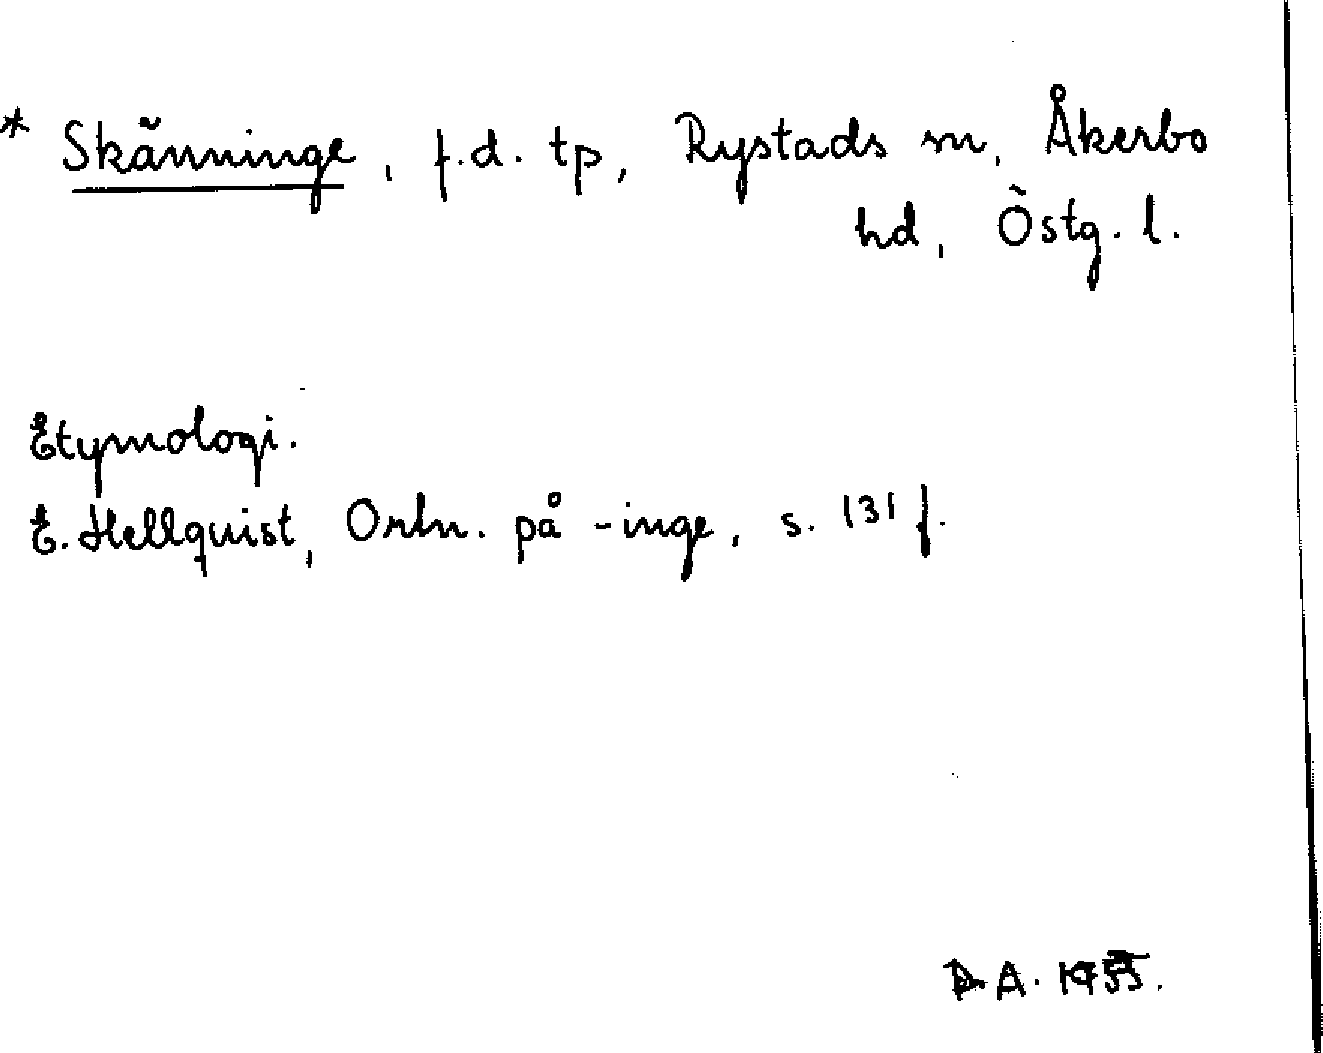 * Skänninge, f.d. tp, Rystads sn, Åkerbo
hd, Östg. l.
Etymologi.
E. Hellquist, Ortn. på -inge, s. 131 f.
A. 1955.